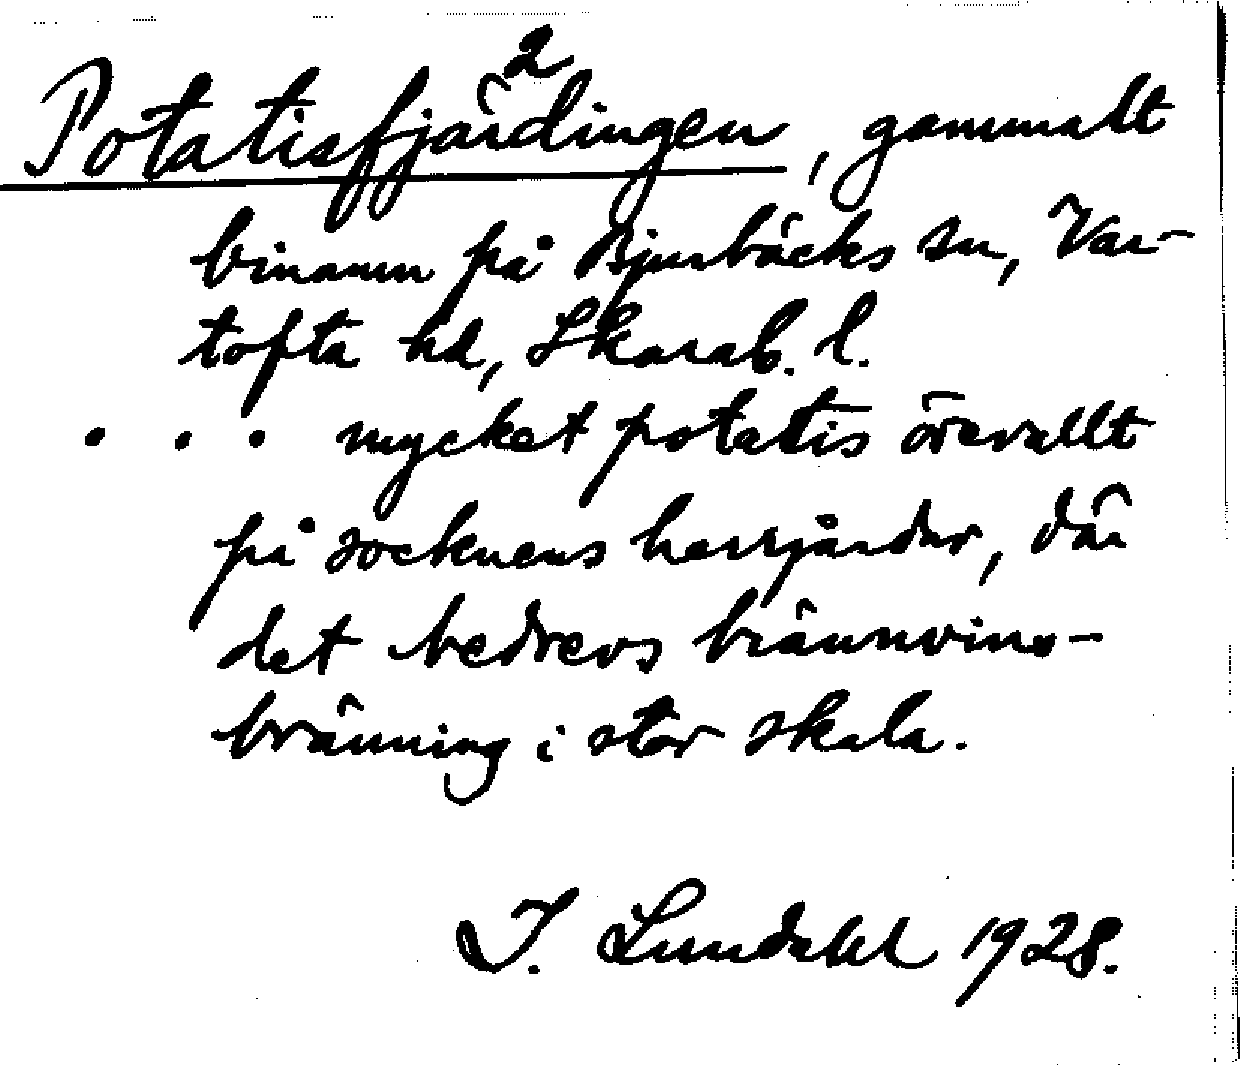 Potatisfjärdingen, gammalt
2
binamn på Bjurbäcks sn, Var-
tofta hd, Skarab. l.
. . . mycket potatis överallt
på socknens herrgårdar, där
det bedrevs brännvins-
bränning i stor skala.
I. Lundahl 1928.